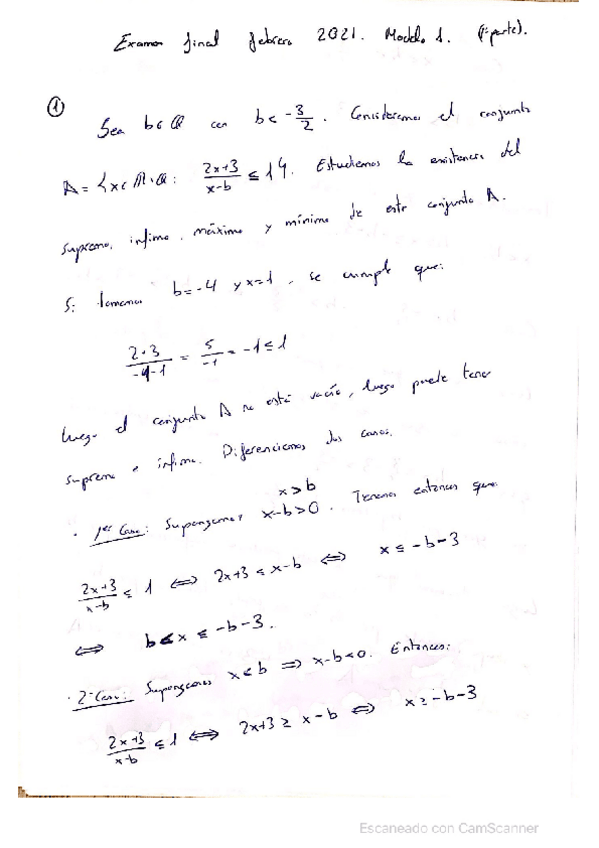 Examen final febrero 2021. Modelo 1. (1ª parte).
① Sea b∈ℚ con b < -3/2. Consideremos el conjunto
A = {x∈ℝ∖ℚ: (2x+3)/(x-b) ≤ 1}. Estudiemos la existencia del
supremo, ínfimo, máximo y mínimo de este conjunto A.
Si tomamos b=-4 y x=1, se cumple que:
(2·3)/(-4-1) = 5/-1 = -1 ≤ 1
luego el conjunto A no está vacío, luego puede tener
supremo e ínfimo. Diferenciamos dos casos.
x>b
· 1er Caso: Supongamos x-b>0. Tenemos entonces que:
(2x+3)/(x-b) ≤ 1 ⟺ 2x+3 ≤ x-b ⟺ x ≤ -b-3
⟺ b<x ≤ -b-3.
· 2º Caso: Supongamos x<b ⟹ x-b<0. Entonces:
(2x+3)/(x-b) ≤ 1 ⟺ 2x+3 ≥ x-b ⟺ x ≥ -b-3
Escaneado con CamScanner